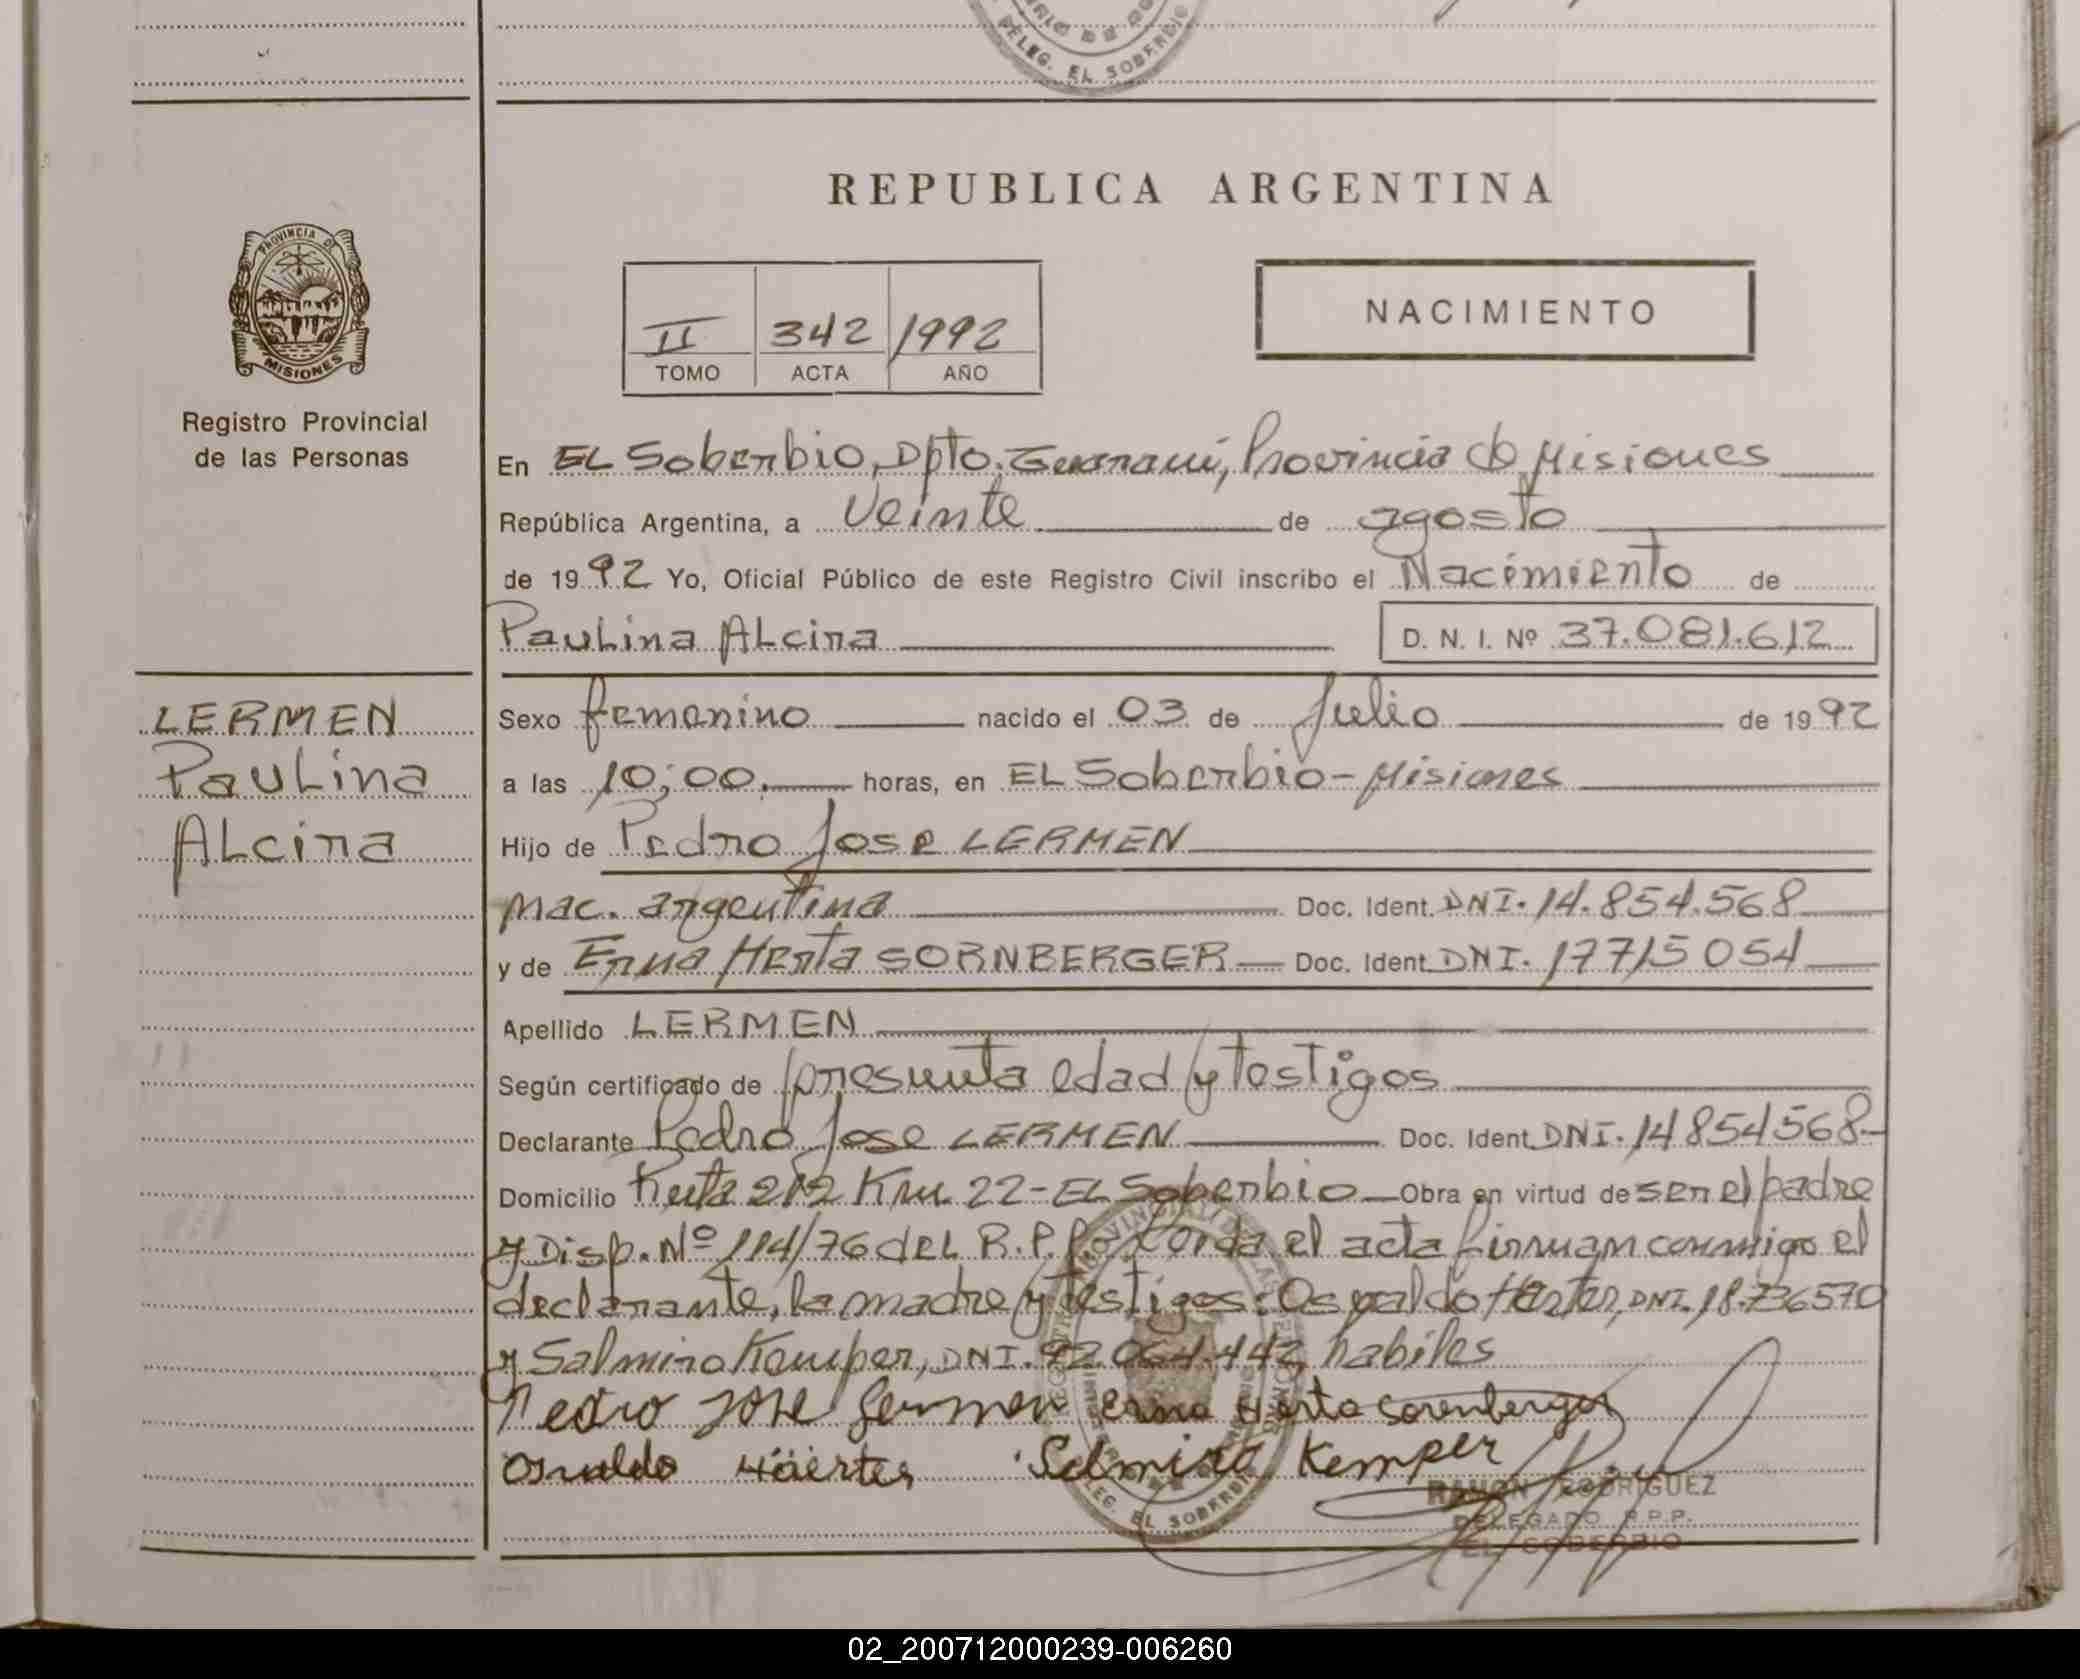 DELEG. EL SOBERBIO
REPUBLICA ARGENTINA
PROVINCIA DE
MISIONES
II 342 1992
TOMO ACTA AÑO
NACIMIENTO
Registro Provincial
de las Personas
En EL Soberbio, Dpto. Guarani, Provincia de Misiones
República Argentina, a Veinte de agosto
de 1992 Yo, Oficial Público de este Registro Civil inscribo el Nacimiento de
Paulina Alcira D. N. I. Nº 37.081.612
LERMEN
Paulina
Alcira
Sexo femenino nacido el 03 de Julio de 1992
a las 10;00. horas, en EL Soberbio - Misiones
Hijo de Pedro Jose LERMEN
nac. argentina Doc. Ident. DNI. 14.854.568
y de Erna Herta SORNBERGER Doc. Ident. DNI. 17715054
Apellido LERMEN
Según certificado de presunta edad y testigos
Declarante Pedro Jose LERMEN Doc. Ident. DNI. 14854568-
Domicilio Ruta 212 Km. 22 - EL Soberbio Obra en virtud de ser el padre
y Disp. Nº 114/76 del R.P.P. el acta firman conmigo el
declarante, la madre y testigos: Osvaldo DNI. 18.736570
y Salmiro Kemper, DNI. 92.064.442, habiles
Pedro Jose Lermen Erna Herta Sorenberger
Osvaldo Häerter Selmiro Kemper
RAMON RODRIGUEZ
DELEGADO R.P.P.
EL SOBERBIO
DELEG. EL SOBERBIO
02_200712000239-006260